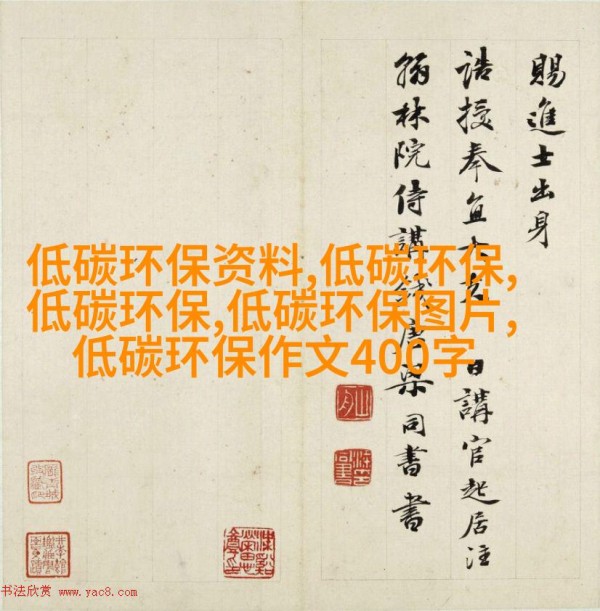 賜進士出身
誥授奉直大夫 日講官起居注
翰林院侍講錢唐梁同書書
低碳环保资料,低碳环保,
低碳环保,低碳环保图片,
低碳环保作文400字
书法欣赏 www.yac8.com